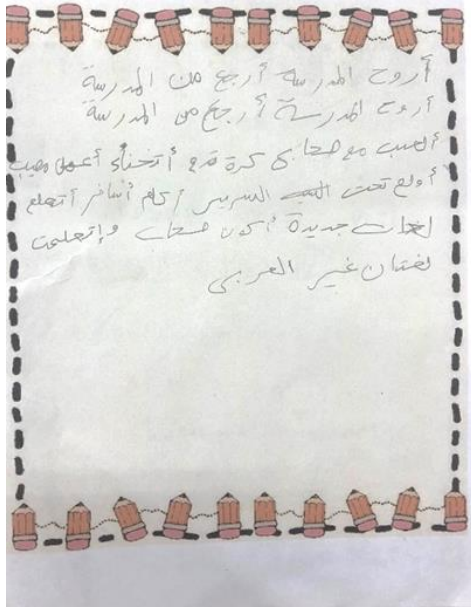 أروح المدرسة أرجع من المدرسة
أروح المدرسة أرجع من المدرسة
ألعب مع صحابي كرة قدم أتخنأ أعمل
أولع تحت السرير أكلم أسافر أتعلم
لغات جديدة أكون صحاب وإتعلمت
لغتان غير العربي